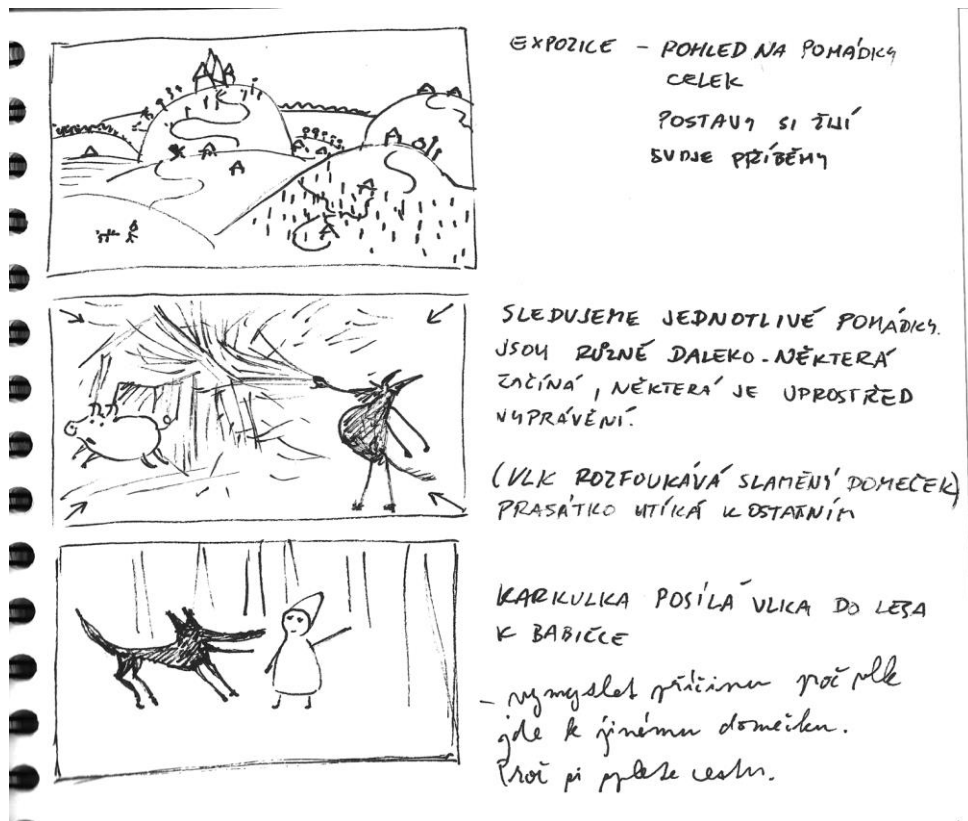 EXPOZICE - POHLED NA POHÁDKY
CELEK
POSTAVY SI ŽIJÍ
SVOJE PŘÍBĚHY
SLEDUJEME JEDNOTLIVÉ POHÁDKY.
JSOU RŮZNĚ DALEKO - NĚKTERÁ
ZAČÍNÁ, NĚKTERÁ JE UPROSTŘED
VYPRÁVĚNÍ.
(VLK ROZFOUKÁVÁ SLAMĚNÝ DOMEČEK)
PRASÁTKO UTÍKÁ K OSTATNÍM
KARKULKA POSÍLÁ VLKA DO LESA
K BABIČCE
- vymyslet příčinu proč vlk
jde k jinému domečku.
Proč si splete cestu.